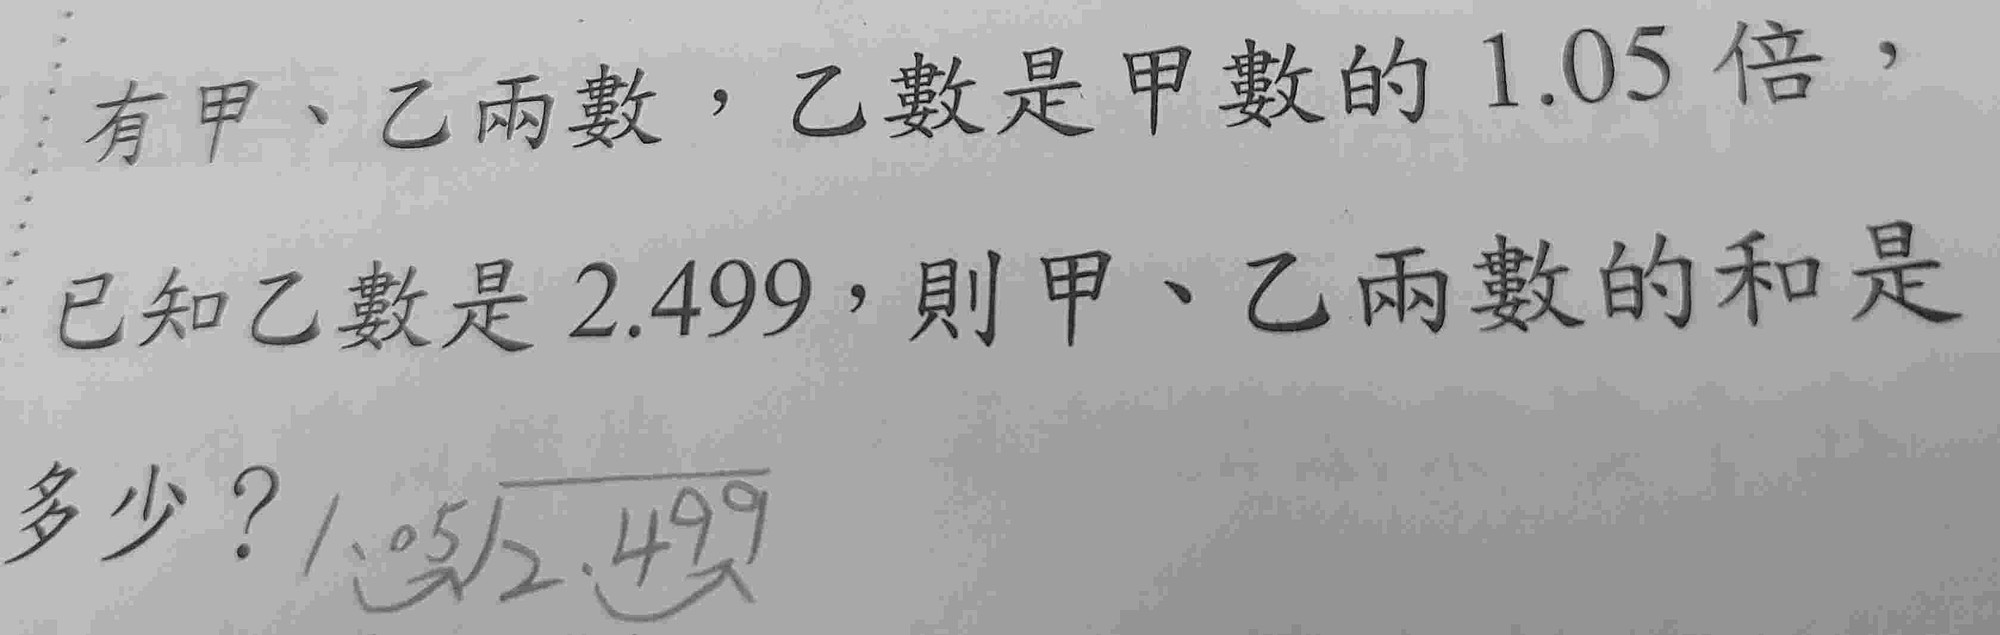 有甲、乙兩數，乙數是甲數的 1.05 倍，
已知乙數是 2.499，則甲、乙兩數的和是
多少？ 1.05√2.499